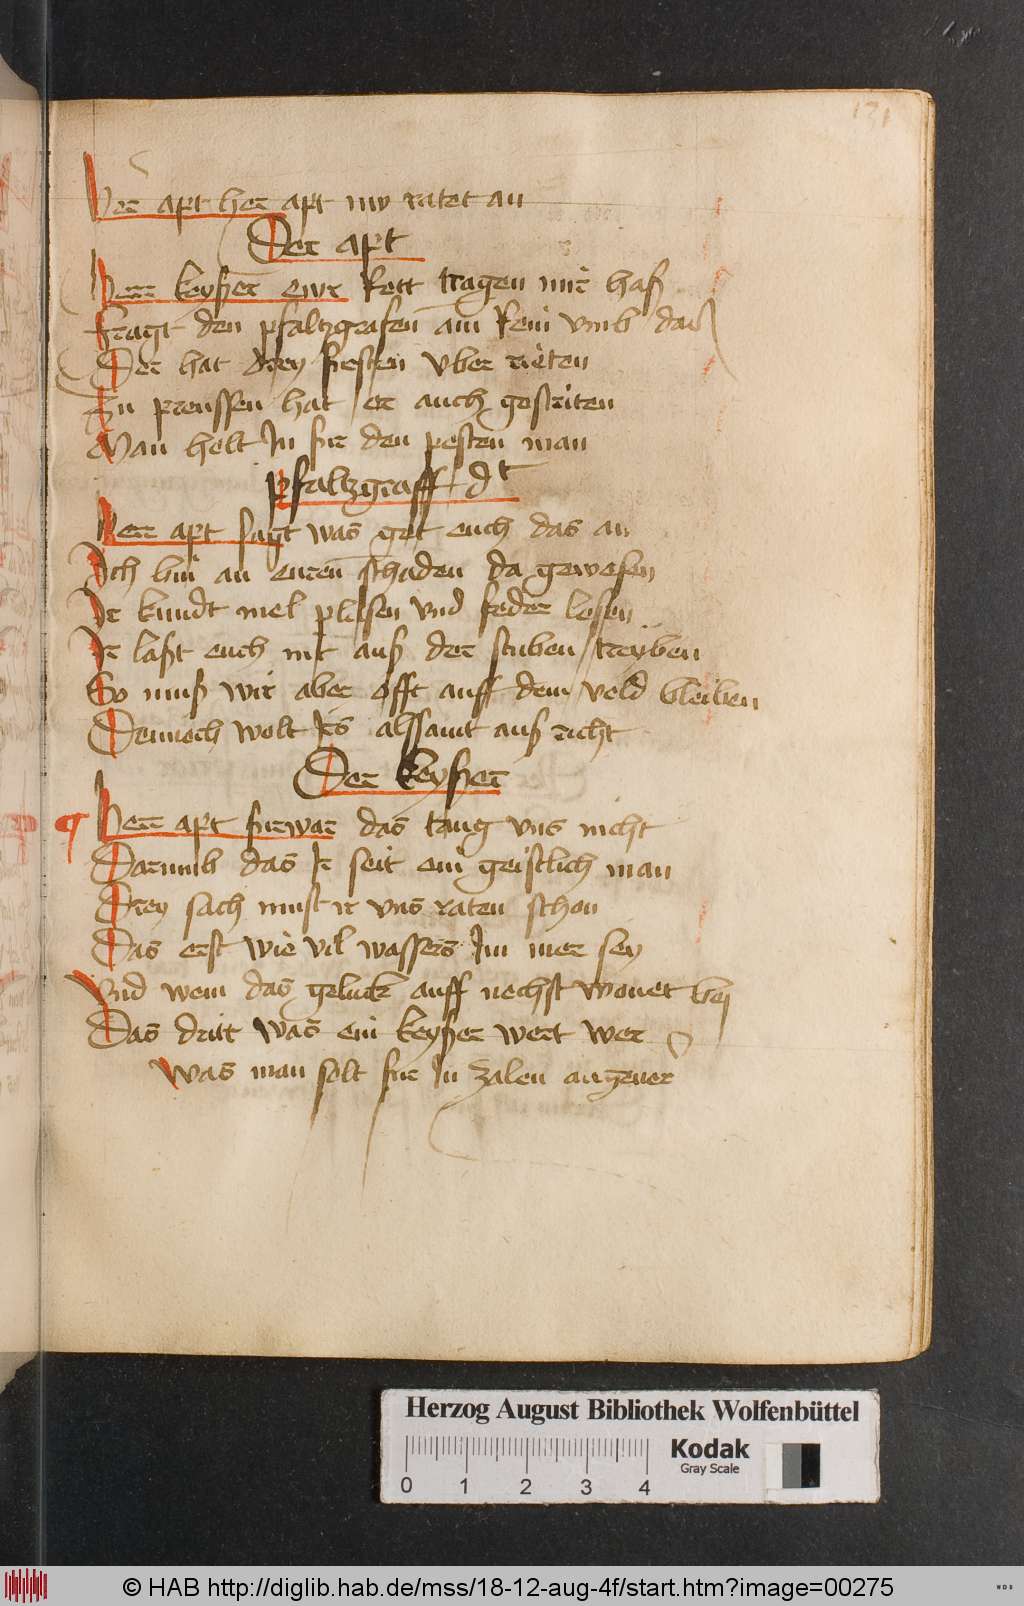 131
Her apt her apt nw ratet an
Der apt
Herr keyßer ewr Rett tragen mir haß
Fragt den pfaltzgrafen am Rein vmb das
Der hat drey fursten vber riten
In preussen hat er auch gestriten
Man helt In fur den pesten man
pfaltzgraff dt
Herr apt sagt was get euch das an
Ich bin an euren schaden da gewesen
Ir kundt mel plasen vnd feder lesen
Ir laßt euch nit auß der stuben treyben
So muß wir aber offt auff dem veld bleiben
Dennoch wolt irs alssamt auß richt
Der keyßer
Herr apt furwar das taug vns nicht
Darumb das Ir seit ein geistlich man
Drey sach must ir vns raten schon
Das erst wie vil wassers Im mer sey
Vnd wem das geluck auff nechst wonet bey
Das dritt was ein keyßer wert wer
Was man solt fur In zalen angever
Herzog August Bibliothek Wolfenbüttel
Kodak
Gray Scale
0 1 2 3 4
© HAB http://diglib.hab.de/mss/18-12-aug-4f/start.htm?image=00275